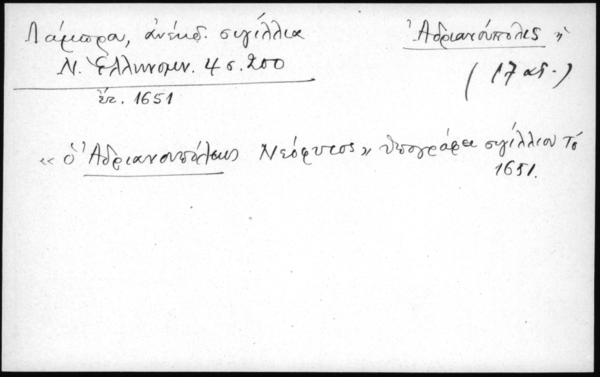 Λάμπρα, ἀνέκδ. σιγίλλια
Ν. Ἑλληνομν. 4 σ. 200
ἔτ. 1651
Ἀδριανούπολις ἡ
(17 αἰ.)
«ὁ Ἀδριανουπόλεως Νεόφυτος» ὑπογράφει σιγίλλιον τὸ
1651.